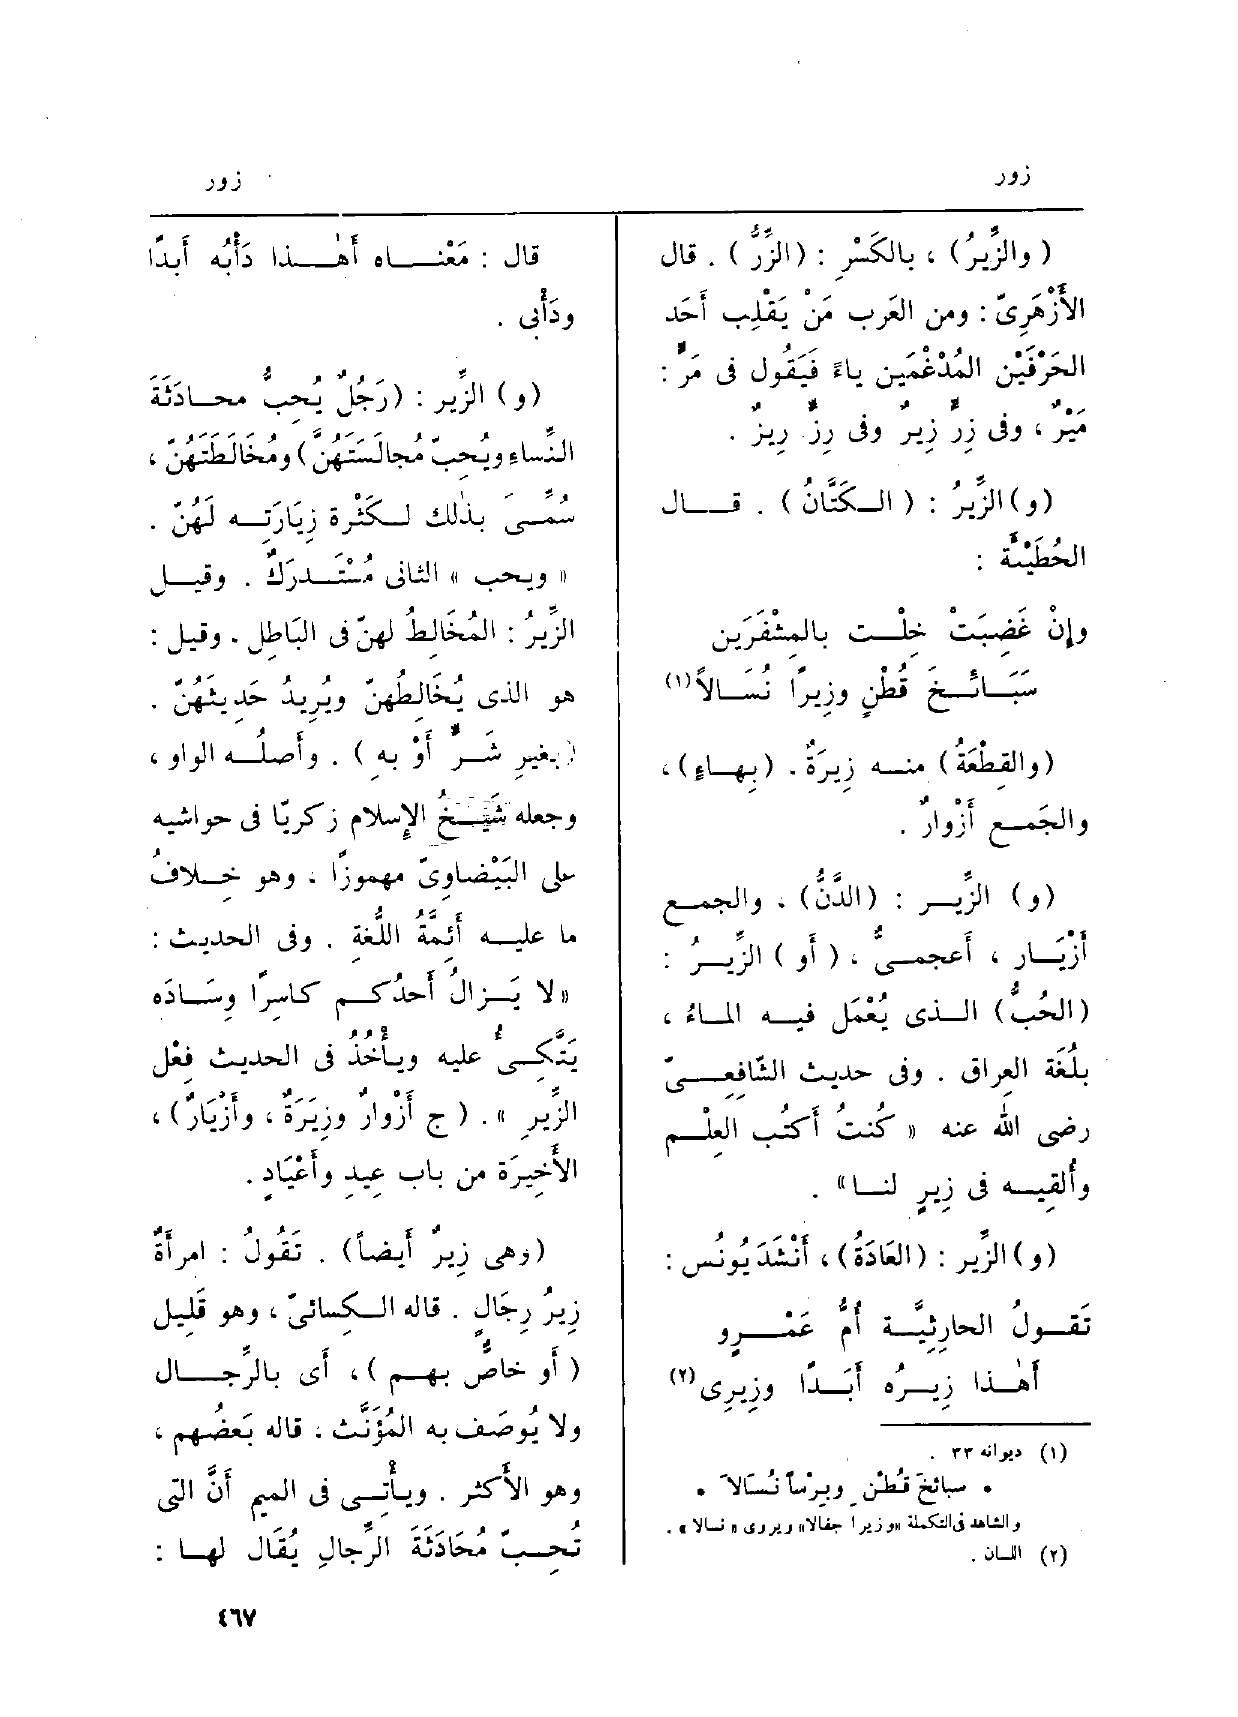 زور
زور
(والزِّيرُ) ، بالكَسْرِ : (الزِّرُّ) . قال
الأَزْهَرِىّ : ومن العَرب مَنْ يَقْلِب أَحَد
الحَرْفَيْن المُدْغَمَين ياءً فيَقُول فى مَرٍّ :
مَيْرٌ ، وفى زِرٍّ زِيرٌ وفى رِزٍّ رِيزٌ .
(و) الزِّيرُ : (الـكَتَّانُ) . قـال
الحُطَيْئَة :
وإنْ غَضِبَتْ خِلْـتَ بالمِشْفَرَين
سَبَـائِـخَ قُطْنٍ وزِيرًا نُسَـالاً (١)
(والقِطْعَةُ) منـه زِيرَةٌ . (بِهـاءٍ) ،
والجَمـع أَزْوارٌ .
(و) الزِّيـر : (الدَّنُّ) ، والجمـع
أَزْيَـار ، أَعجمـىٌّ ، (أَو) الزِّيـرُ :
(الحُبُّ) الـذى يُعْمَل فيـه المـاءُ ،
بلُغَة العِراق . وفى حديث الشّافِعـىّ
رضى الله عنه « كُنتُ أَكتُب العِلْـم
وأُلقِيـه فى زِيرٍ لنـا » .
(و) الزِّير : (العَادَةُ) ، أَنْشَدَ يُونُس :
تَقـولُ الحارِثِيَّـة أُمُّ عَمْـرٍو
أَهٰـذا زِيـرُه أَبَـدًا وزِيرِى (٢)
(١) ديوانه ٣٣ .
• سبائخَ قُطْنٍ وبِرْساً نُسَالاَ •
والشاهد فى التكملة «وزيرا جفالا» ويروى « نسالا » .
(٢) اللسان .
قال : مَعْنـاه أَهٰـذا دَأْبُه أَبدًا
ودَأْبِى .
(و) الزِّير : (رَجُلٌ يُحِبُّ محـادَثَةَ
النِّساءِ ويُحِبّ مُجالَسَتَهُنَّ) ومُخَالَطَتَهُنّ ،
سُمِّـىَ بذٰلك لـكَثْرة زِيَارَتِـه لَهُنّ .
« ويحب » الثانى مُسْتَـدرَكٌ . وقيـل
الزِّيرُ : المُخَالِطُ لهنّ فى البَاطِل . وقيل :
هو الذى يُخَالِطُهنّ ويُرِيدُ حَدِيثَهُنّ .
(بغيرِ شَـرٍّ أَوْ بِهِ) . وأَصلُـه الواو ،
وجعله شَيْـخُ الإِسلام زكريّا فى حواشيه
على البَيْضاوِىّ مهموزًا ، وهو خِـلافُ
ما عليـه أَئِمَّةُ اللُّغَةِ . وفى الحديث :
« لا يَـزالُ أَحدُكـم كاسِرًا وِسَـادَه
يَتَّكِـئُ عليه ويأْخُذُ فى الحديث فِعْل
الزِّيرِ » . (ج أَزْوارٌ وزِيَرَةٌ ، وأَزْيَارٌ) ،
الأَخِيرَة من باب عِيدٍ وأَعْيَادٍ .
(وهى زِيرٌ أَيضاً) . تَقُولُ : امرأَةٌ
زِيرُ رِجَالٍ . قاله الـكسائىّ ، وهو قَلِيل
(أَو خاصٌّ بهـم) ، أَى بالرِّجـال
ولا يُوصَف به المُؤنَّث ، قاله بَعضُهم ،
وهو الأَكثر . ويأْتِـى فى الميم أَنَّ التى
تُحِـبّ مُحَادَثَةَ الرِّجالِ يُقَال لهـا :
٤٦٧